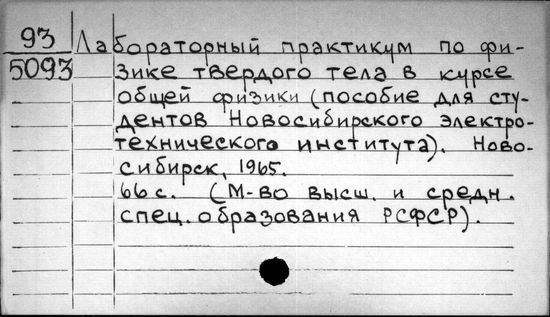 93 Лабораторный практикум по фи-
5093 зике твердого тела в курсе
общей физики (пособие для сту-
дентов Новосибирского электро-
технического института). Ново-
сибирск, 1965.
66 с. (М-во высш. и средн.
спец. образования РСФСР).